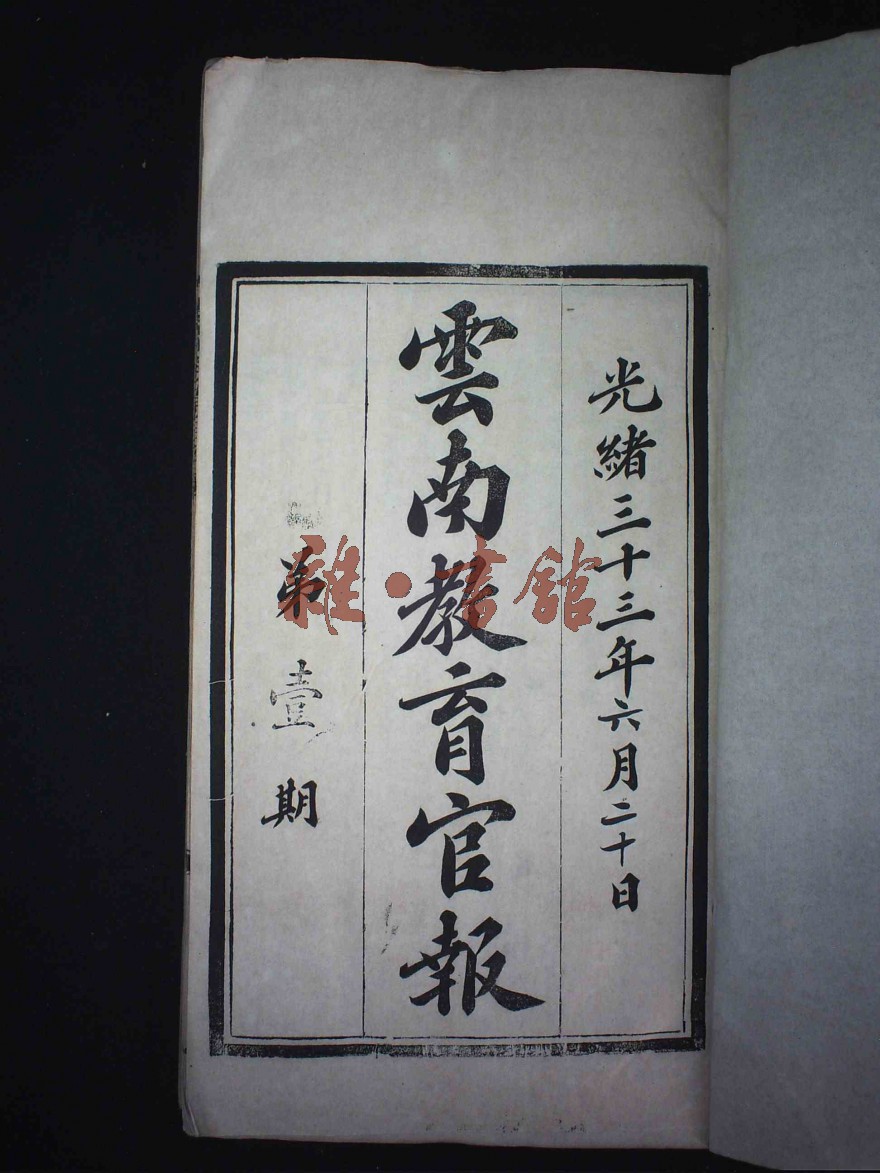 光緒三十三年六月二十日
雲南教育官報
弟壹期
雜·書館